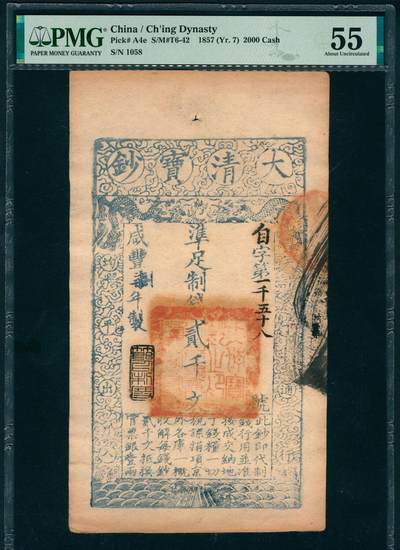 PMG
PAPER MONEY GUARANTY
China / Ch'ing Dynasty
Pick# A4e S/M#T6-42 1857 (Yr. 7) 2000 Cash
S/N 1058
55
About Uncirculated
大清寶鈔
自字第一千五十八號
準足制錢貳千文
咸豐年製
天下通行
均平出入
此鈔即代制
錢行用並准
按成交納地
丁錢糧一切
稅課捐項京
外各庫一概
收解每錢鈔
貳千文抵換
官票銀壹兩